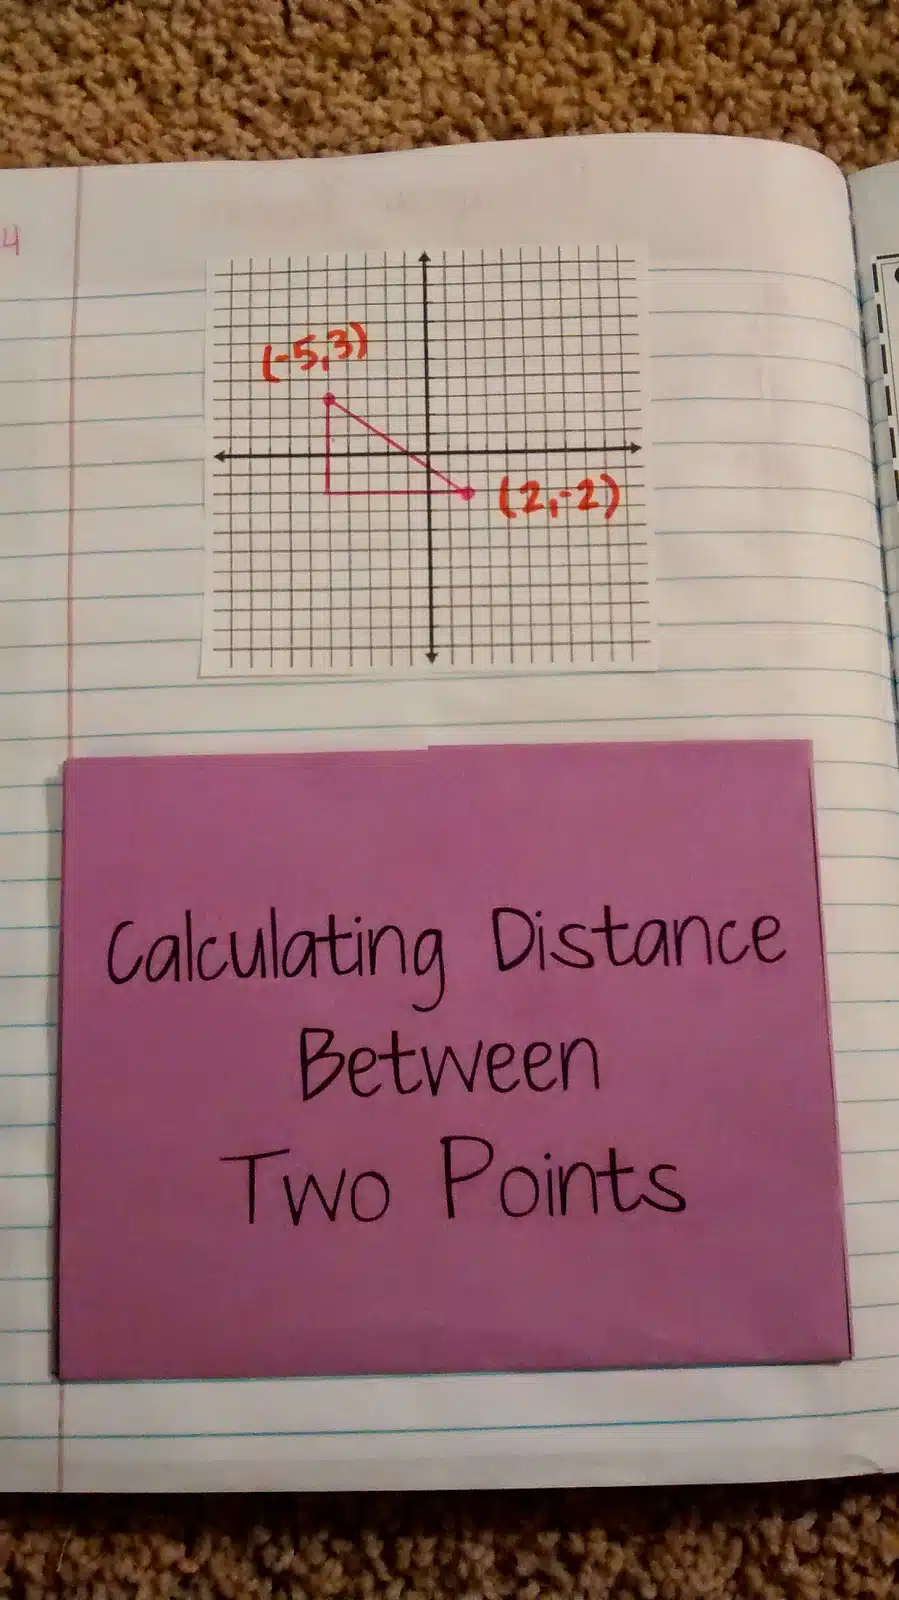 4
(-5,3)
(2,-2)
Calculating Distance
Between
Two Points